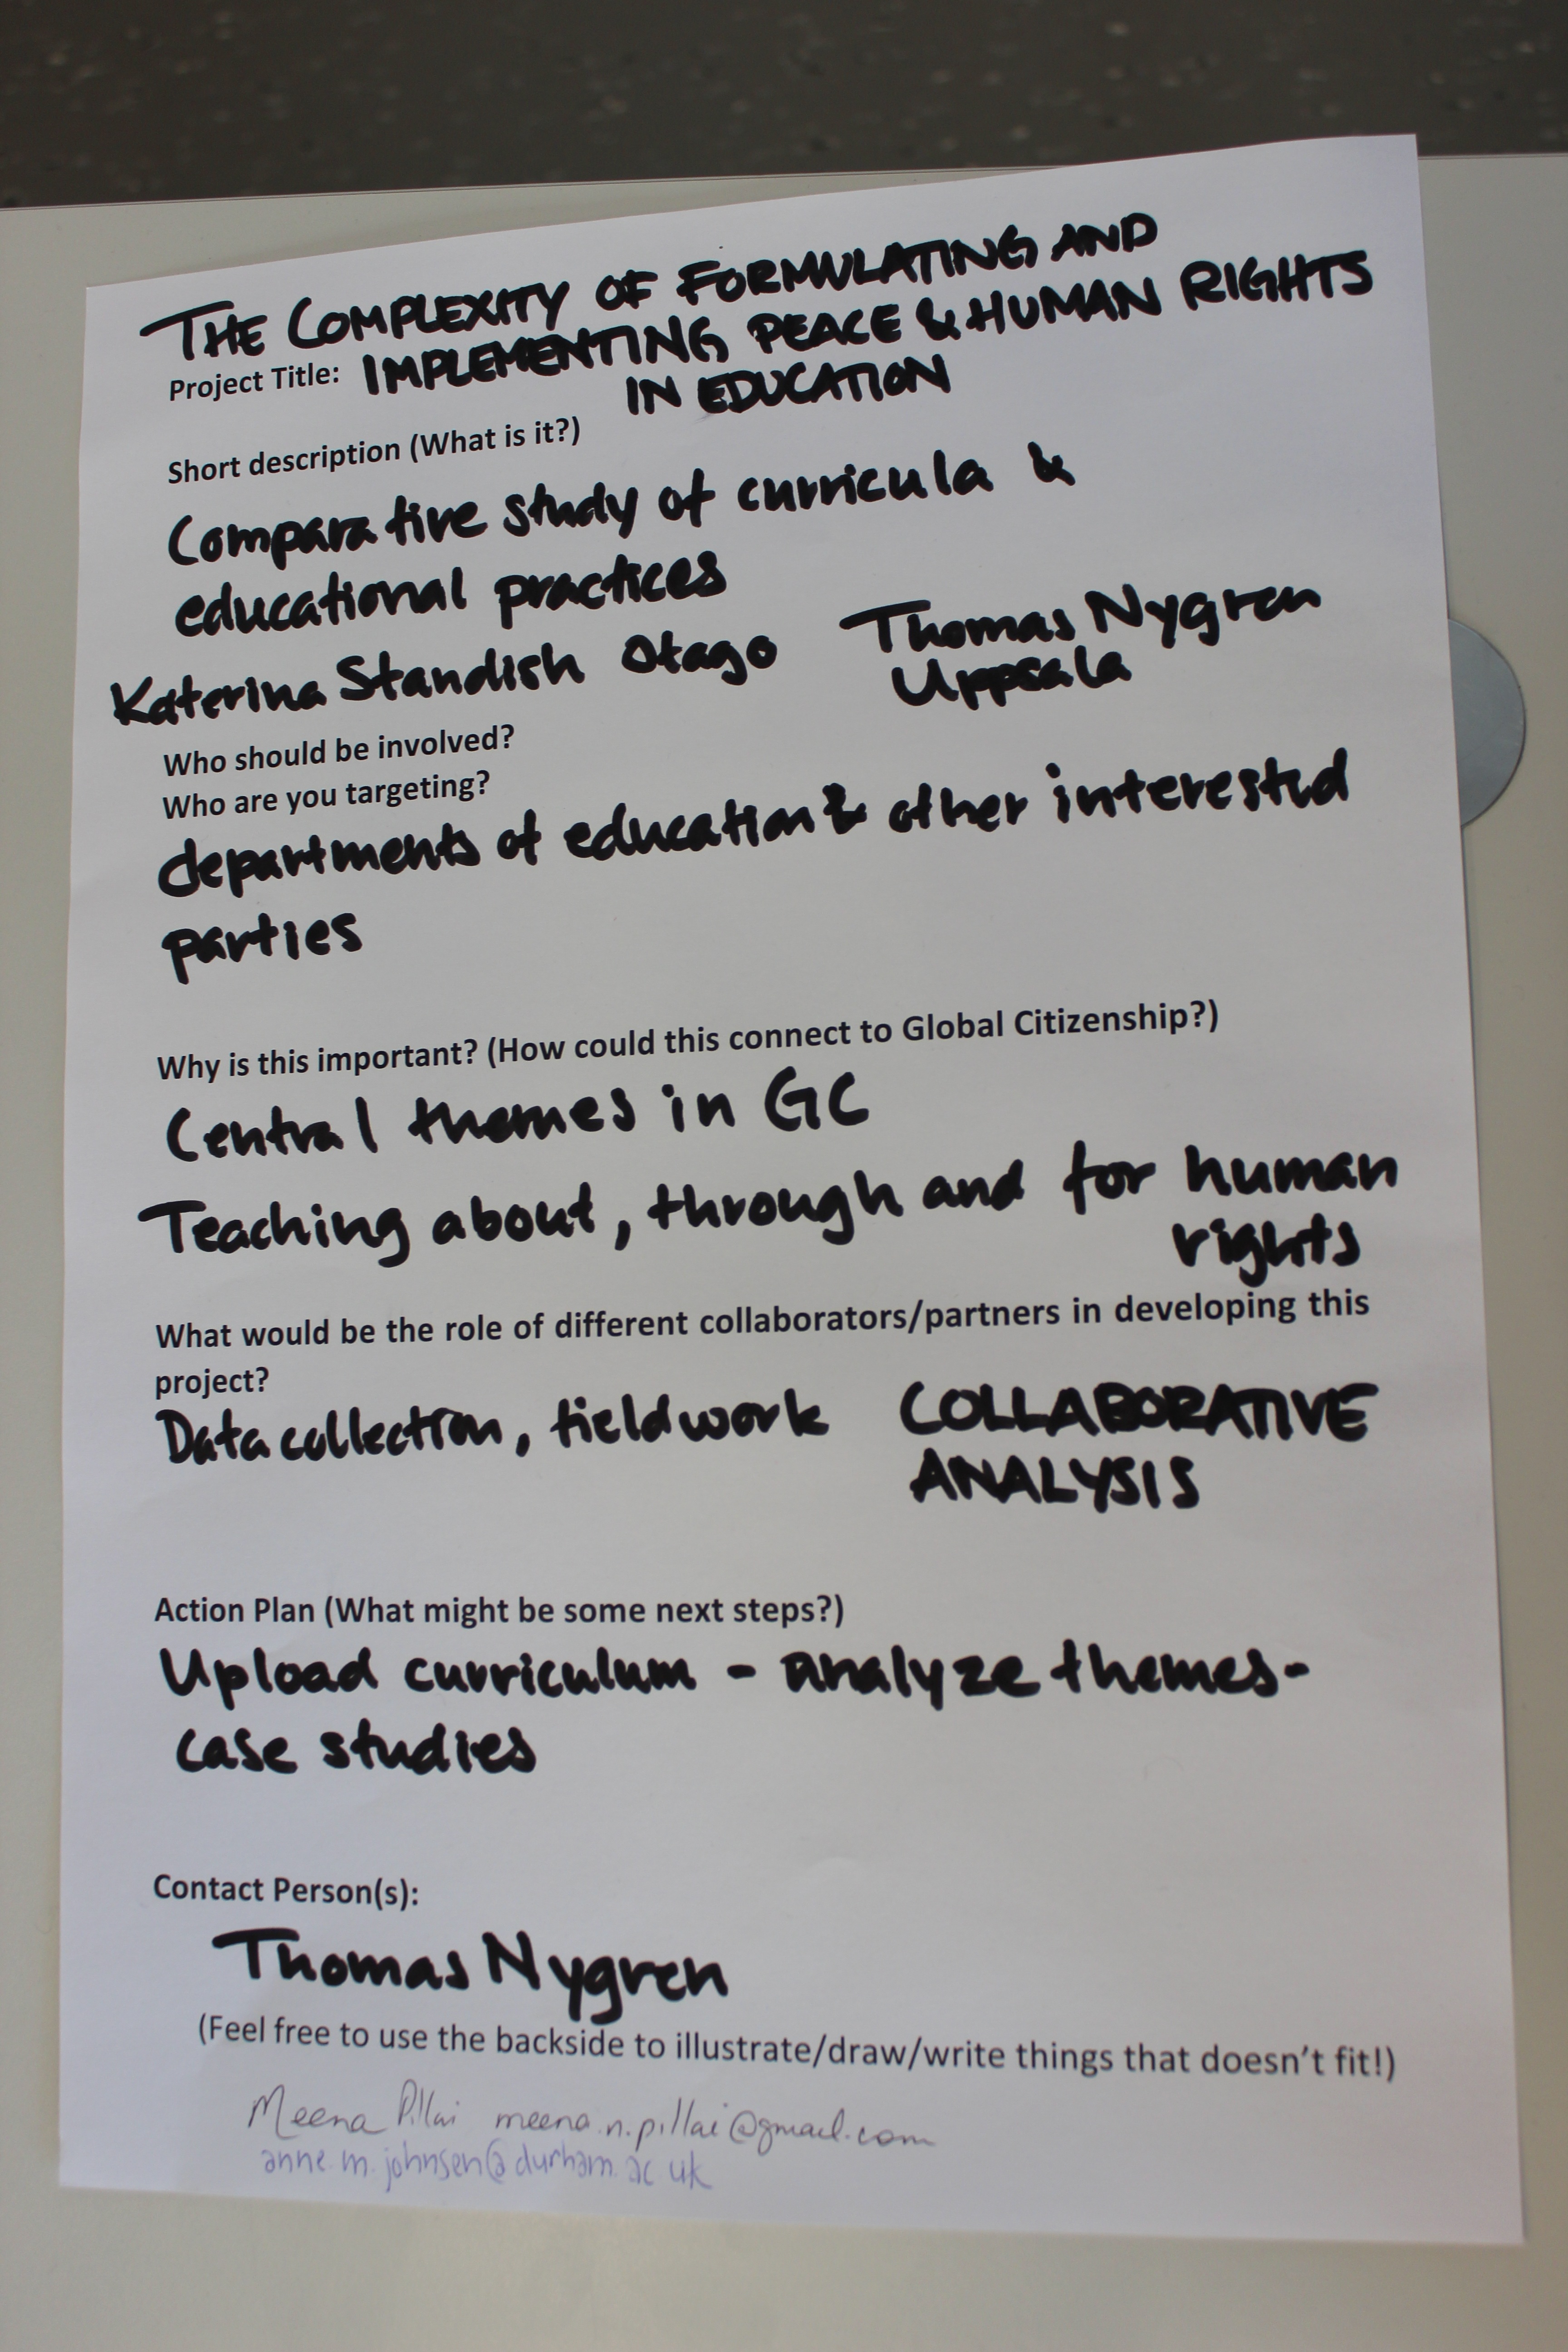 THE COMPLEXITY OF FORMULATING AND
Project Title: IMPLEMENTING PEACE & HUMAN RIGHTS
IN EDUCATION
Short description (What is it?)
Comparative study of curricula &
educational practices
Katerina Standish Otago Thomas Nygren
Uppsala
Who should be involved?
Who are you targeting?
departments of education & other interested
parties
Why is this important? (How could this connect to Global Citizenship?)
Central themes in GC
Teaching about, through and for human
rights
What would be the role of different collaborators/partners in developing this
project?
Data collection, fieldwork COLLABORATIVE
ANALYSIS
Action Plan (What might be some next steps?)
Upload curriculum - analyze themes-
case studies
Contact Person(s):
Thomas Nygren
(Feel free to use the backside to illustrate/draw/write things that doesn't fit!)
Meena Pillai meena.n.pillai@gmail.com
anne.m.johnsen@durham.ac.uk